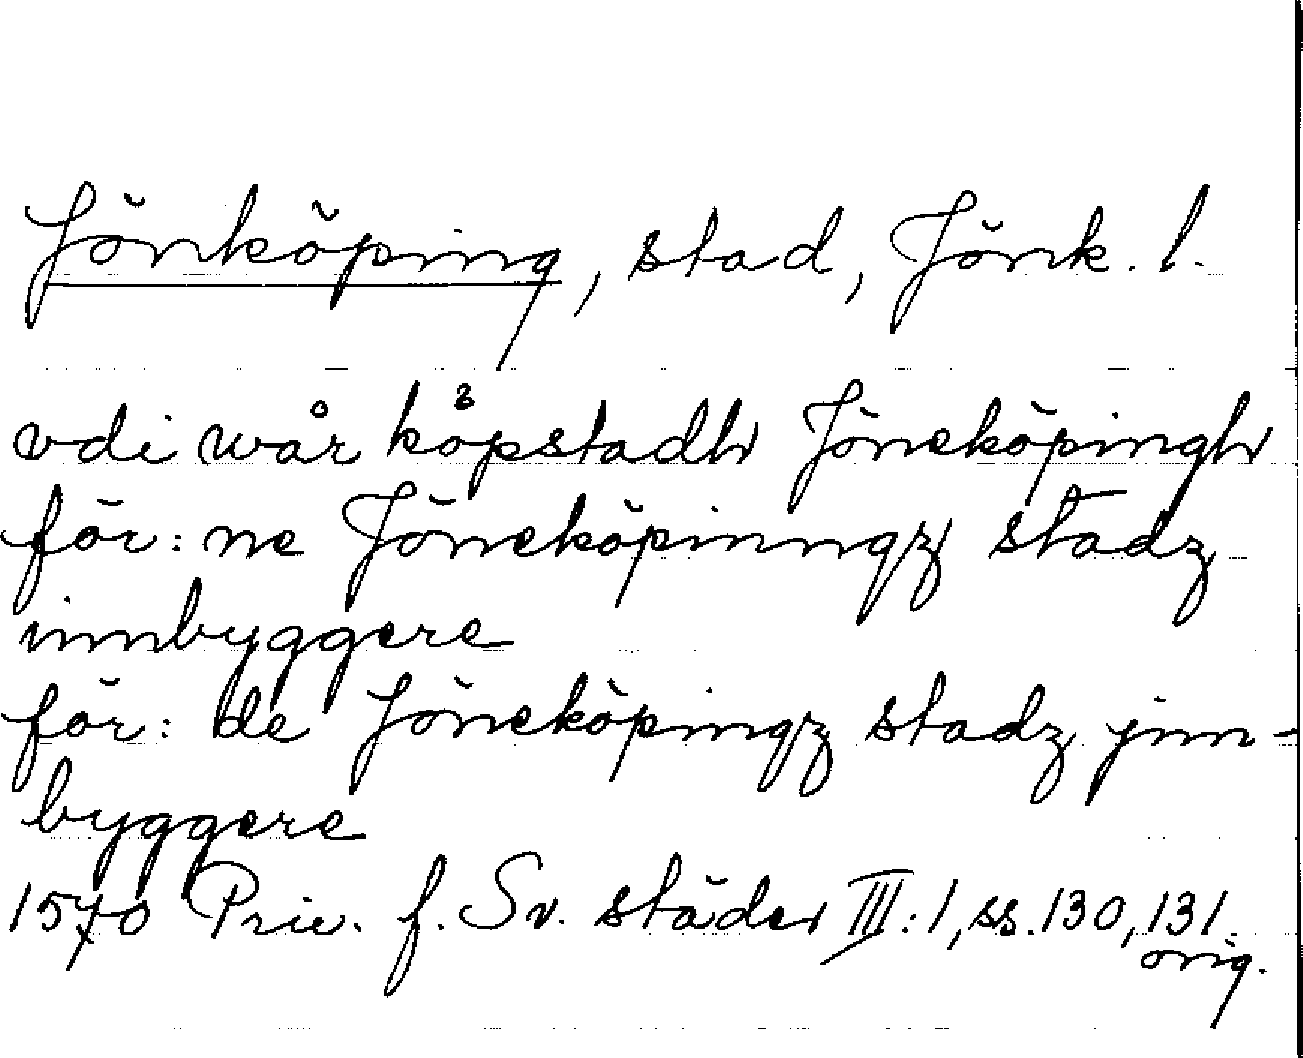 Jönköping, stad, Jönk. l.
vdi wår köpstadh Jöneköpingh
för: ne Jöneköpinngz stadz
innbyggere
för: de Jöneköpingz stadz jnn-
byggere
1570 Priv. f. Sv. städer III: 1, ss. 130, 131.
orig.